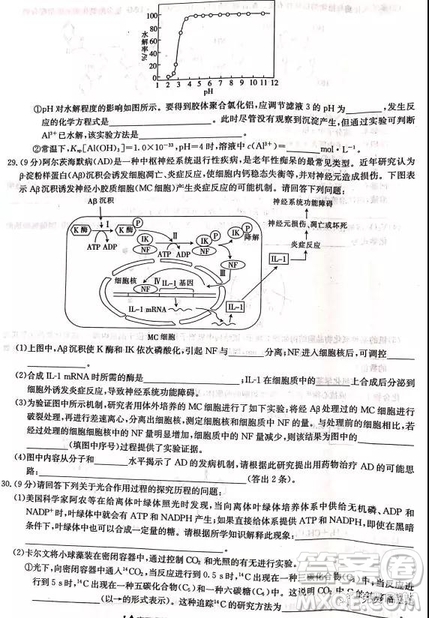 100
80
60
40
20
水解率/%
1 2 3 4 5 6 7 8 9 10 11 12
pH
①pH对水解程度的影响如图所示。要得到胶体聚合氯化铝,应调节滤液3的pH为________,发生反
应的化学方程式是________________。此时尽管没有观察到沉淀产生,但通过实验可判断
Al³⁺已水解,该实验方法是________________。
②常温下,Ksp[Al(OH)₃]=1.0×10⁻³³,pH=4时,溶液中c(Al³⁺)=________mol·L⁻¹。
29.(9分)阿尔茨海默病(AD)是一种中枢神经系统退行性疾病,是老年性痴呆的最常见类型。近年研究认为
β-淀粉样蛋白(Aβ)沉积会诱发细胞凋亡、炎症反应,使细胞内钙稳态失衡等,并对神经元造成损伤。下图表
示Aβ沉积诱发神经小胶质细胞(MC细胞)产生炎症反应的可能机制。请回答下列问题:
Aβ沉积
神经系统功能障碍
神经元损伤、凋亡或坏死
炎症反应
K酶 Ⅰ K酶 P
ATP ADP
IK NF Ⅱ IK P NF
ATP ADP
IK P 降解
NF Ⅲ
细胞核 NF Ⅳ IL-1基因
IL-1 mRNA
IL-1
IL-1
MC细胞
(1)上图中,Aβ沉积使K酶和IK依次磷酸化,引起NF与________分离;NF进入细胞核后,可调控________
________。
(2)合成IL-1 mRNA时所需的酶是________________;IL-1在细胞质中的________上合成后分泌到
细胞外诱发炎症反应,导致神经系统功能障碍。
(3)为验证图中所示机制,研究者用体外培养的MC细胞进行了如下实验,将经Aβ处理过的MC细胞进行
破裂处理,再进行差速离心,分离出细胞核,测定细胞核和细胞质中NF的量。与处理前的细胞相比,若
经过处理的细胞细胞核中的NF量明显增加,细胞质中NF量减少,则该结果为图中的________
________(填图中序号)过程提供了实验证据。
(4)图中内容从分子和________水平揭示了AD的发病机制,请根据此研究提出用药物治疗AD的可能思
路:________________(答出2条)。
30.(9分)请回答下列关于光合作用过程的探究历程的问题:
(1)美国科学家阿农等在给离体叶绿体照光时发现,当向离体叶绿体培养体系中供给无机磷、ADP和
NADP⁺时,叶绿体中就会有ATP和NADPH产生;如果直接给该体系供给ATP和NADPH,即使在黑暗
条件下,叶绿体中也可以合成一定量的糖。请根据所学知识解释此现象:________________
________________。
(2)卡尔文将小球藻装在密闭容器中,通过控制CO₂和光照的有无进行实验。
①光下,向密闭容器中通入¹⁴CO₂,当反应进行到0.5 s时,¹⁴C出现在一种三碳化合物(C₃)中,当反应进
行到5 s时,¹⁴C出现在一种五碳化合物(C₅)和一种六碳糖(C₆)中。这说明CO₂中C的
________(以→的形式表示)。这种追踪¹⁴C的研究方法为________